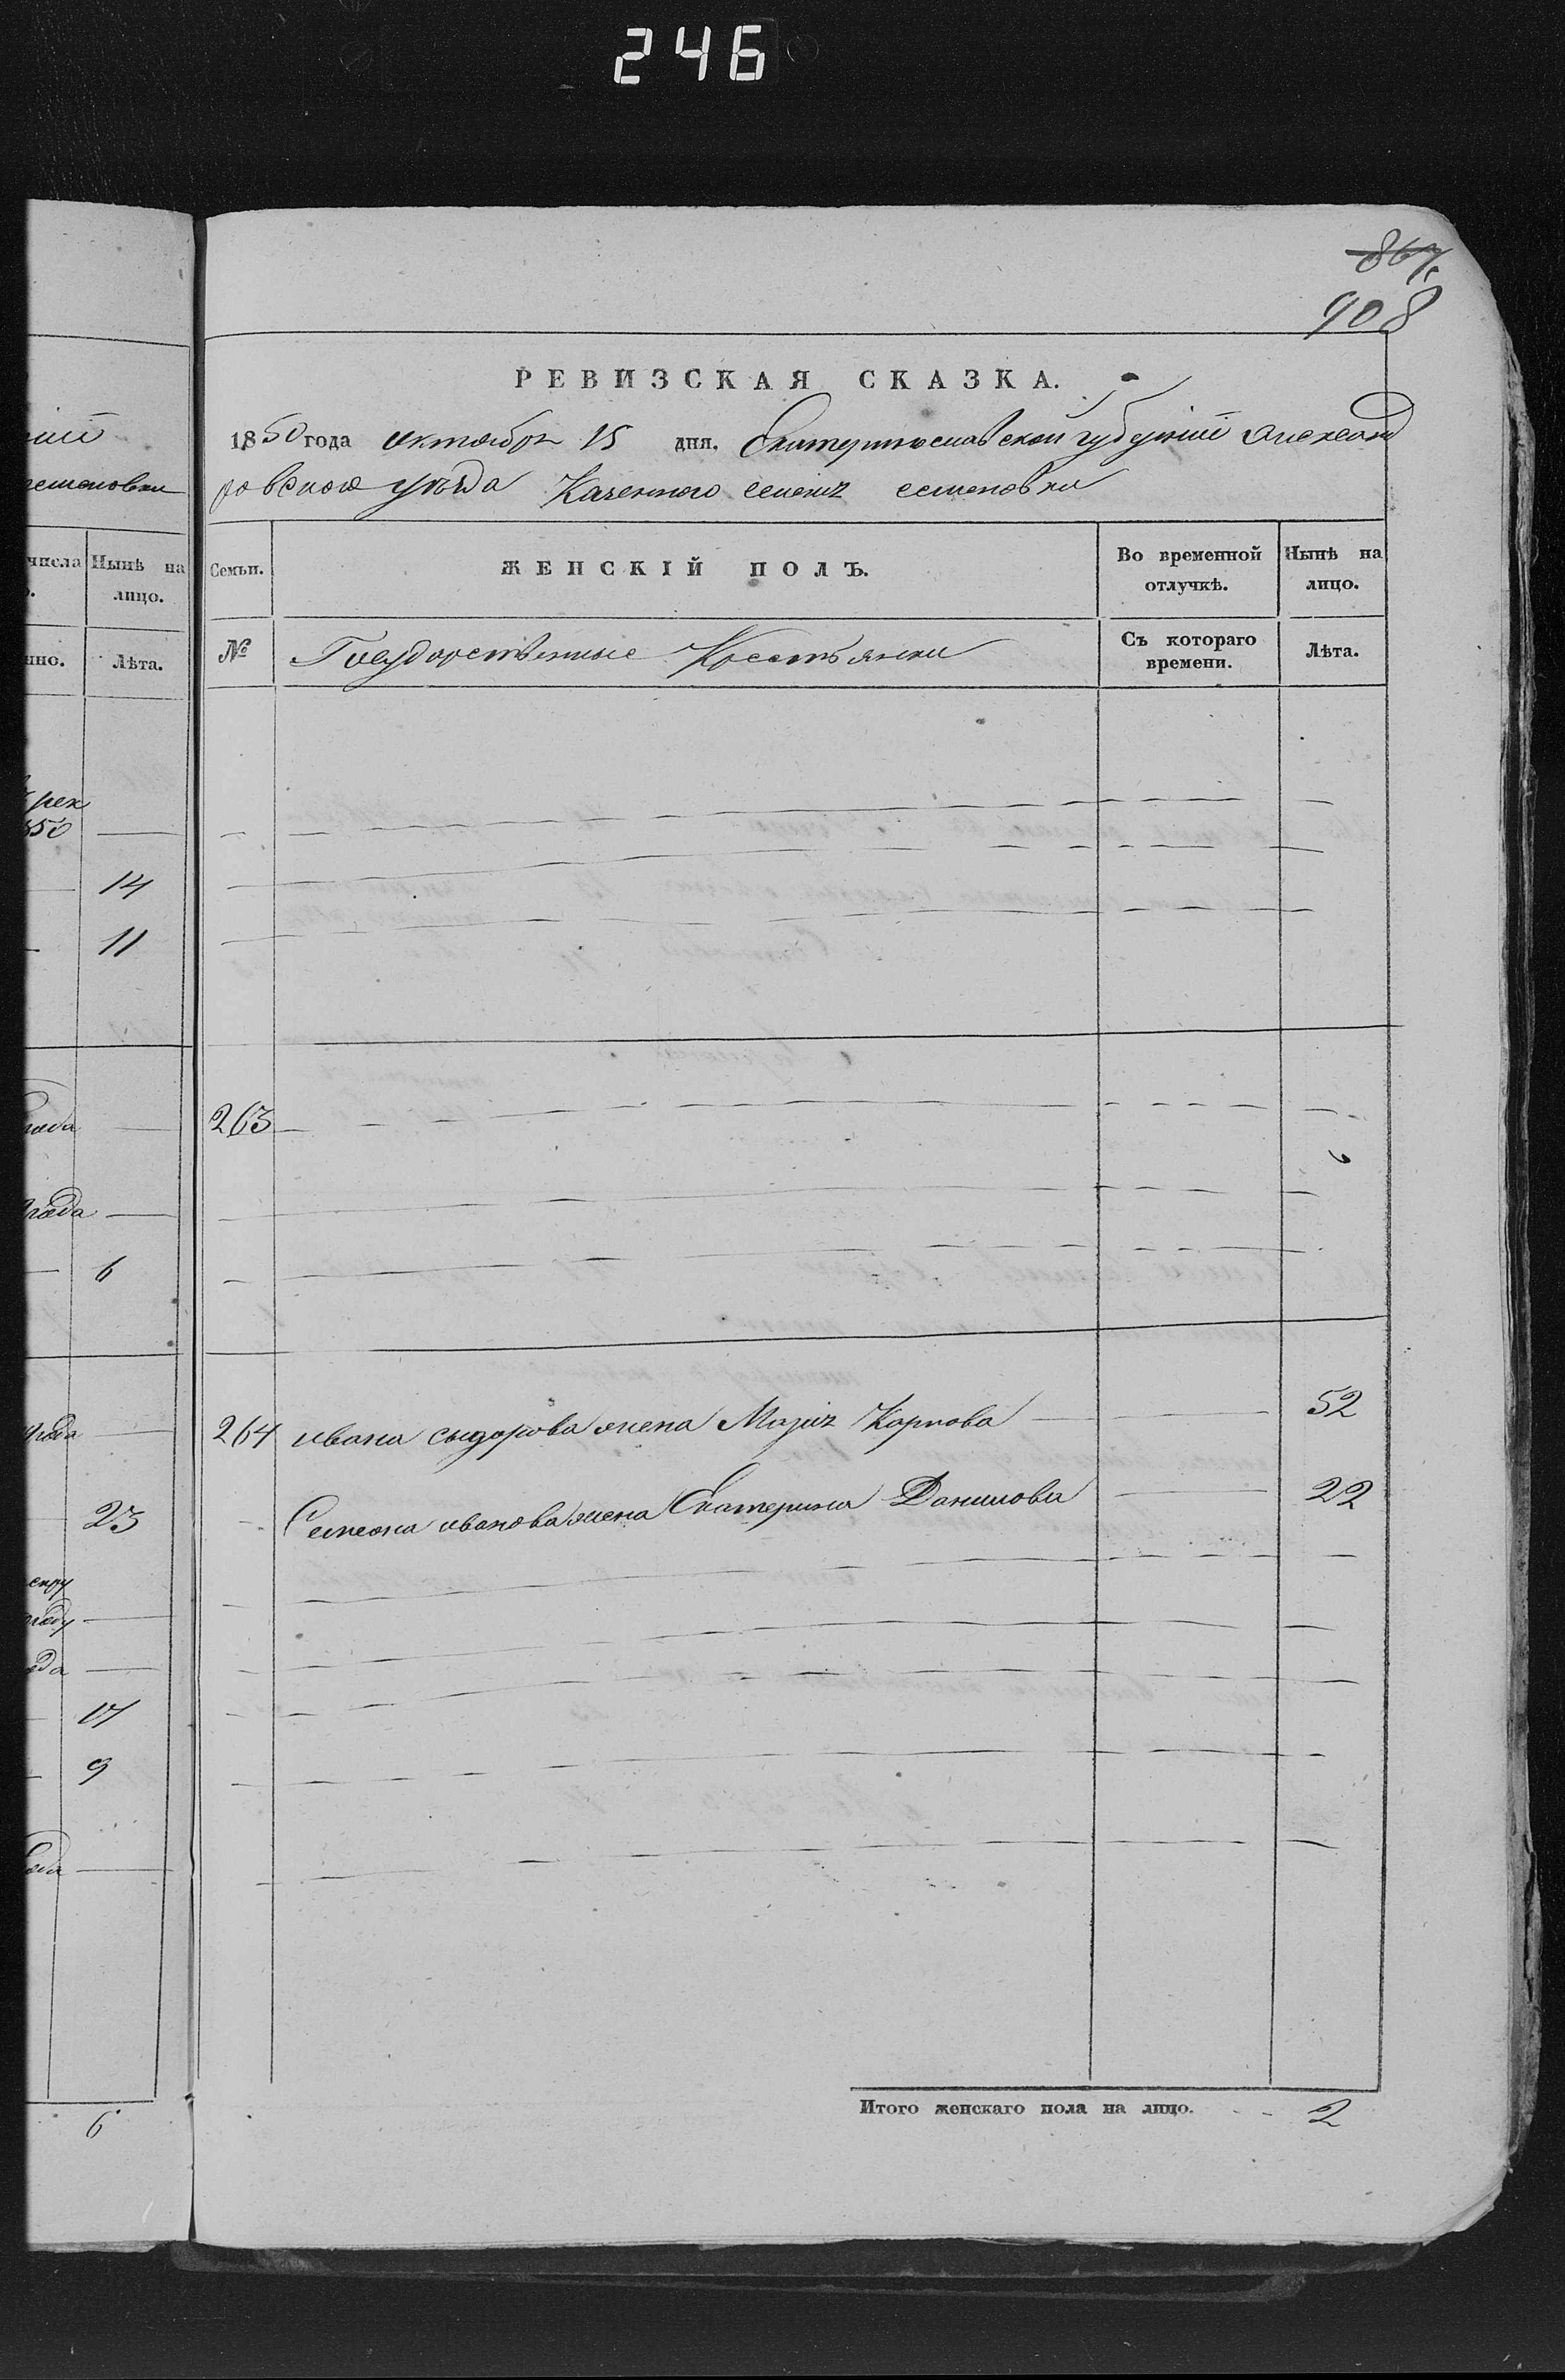 246
867
908
РЕВИЗСКАЯ СКАЗКА.
1850 года октября 15 дня. Екатеринославской губернии Александ
ровского уѣзда Казенного селения семеновки
числа Нынѣ на лицо.
Лѣта.
рек
850
14
11
года
года
6
года
23
году
года
17
9
6
Семьи. ЖЕНСКІЙ ПОЛЪ. Во временной отлучкѣ. Нынѣ на лицо.
№ Государственные Крестьянки Съ котораго времени. Лѣта.
263
264 ивана сыдорова жена Марія Карпова 52
Семена иванова жена Екатерина Данилова 22
Итого женскаго пола на лицо. 2